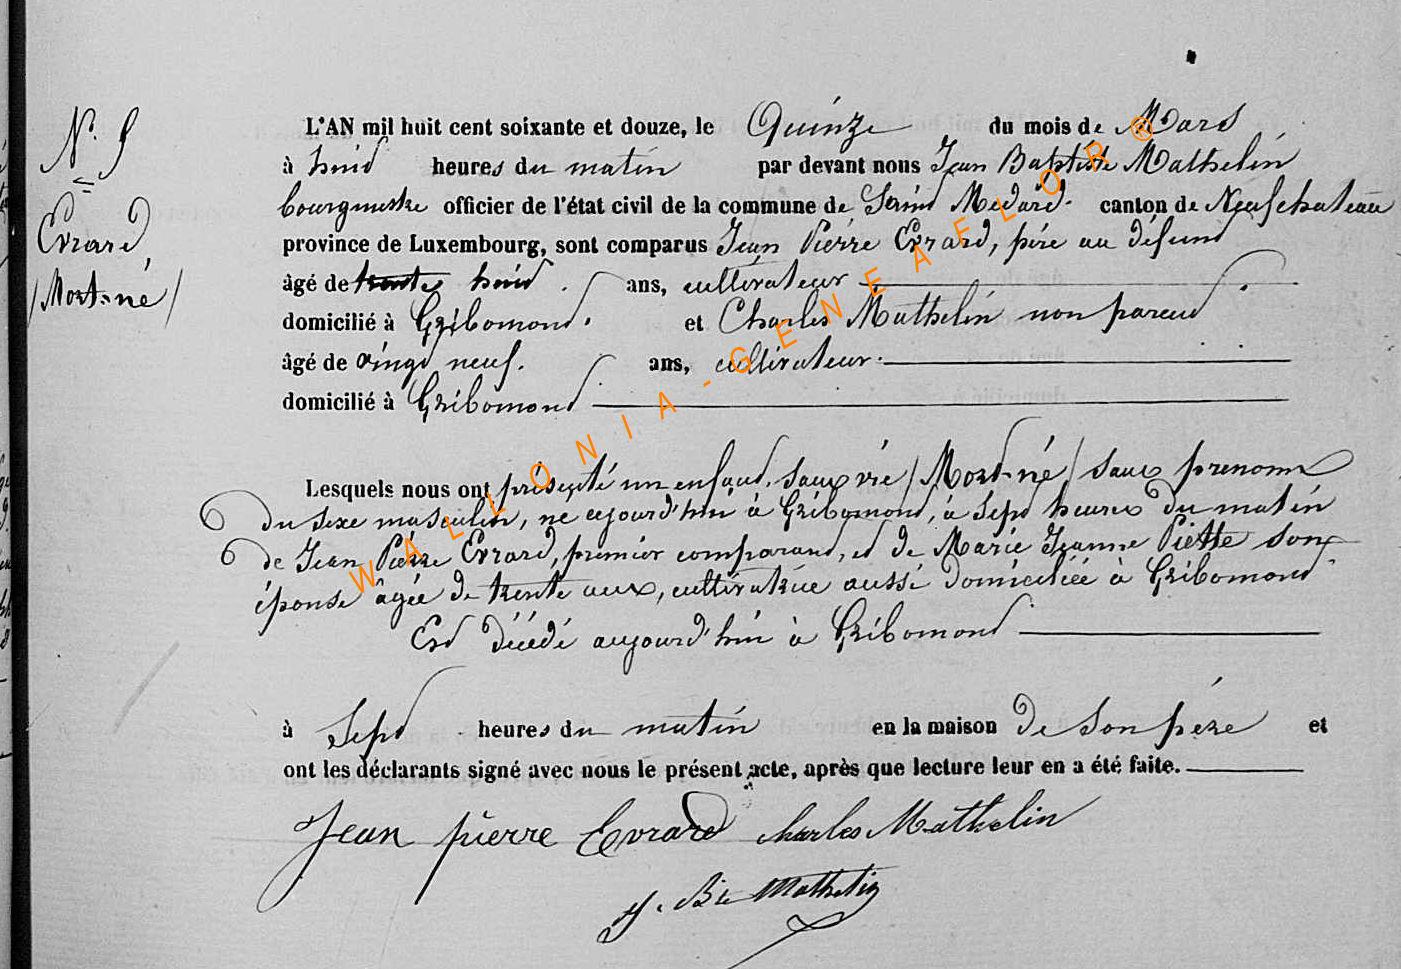 N° 5
Evrard
/Mort-né/
L'AN mil huit cent soixante et douze, le Quinze du mois de Mars
à huit heures du matin par devant nous Jean Baptiste Mathelin
bourgmestre officier de l'état civil de la commune de Saint Médard canton de Neufchateau
province de Luxembourg, sont comparus Jean Pierre Evrard, père au défunt
âgé de trente huit ans, cultivateur
domicilié à Gribomont et Charles Mathelin non parent
âgé de vingt neuf ans, cultivateur
domicilié à Gribomont
Lesquels nous ont présenté un enfant, sans vie /Mort-né/ sans prenoms
du sexe masculin, né aujourd'hui à Gribomont, à sept heures du matin
de Jean Pierre Evrard, premier comparant, et de Marie Jeanne Piette son
épouse âgée de trente ans, cultivatrice aussi domiciliée à Gribomont
Est décédé aujourd'hui à Gribomont
à sept heures du matin en la maison de son père et
ont les déclarants signé avec nous le présent acte, après que lecture leur en a été faite.
Jean pierre Evrard charles Mathelin
J. Bte Mathelin
WALLONIA-GENEAFLOR®